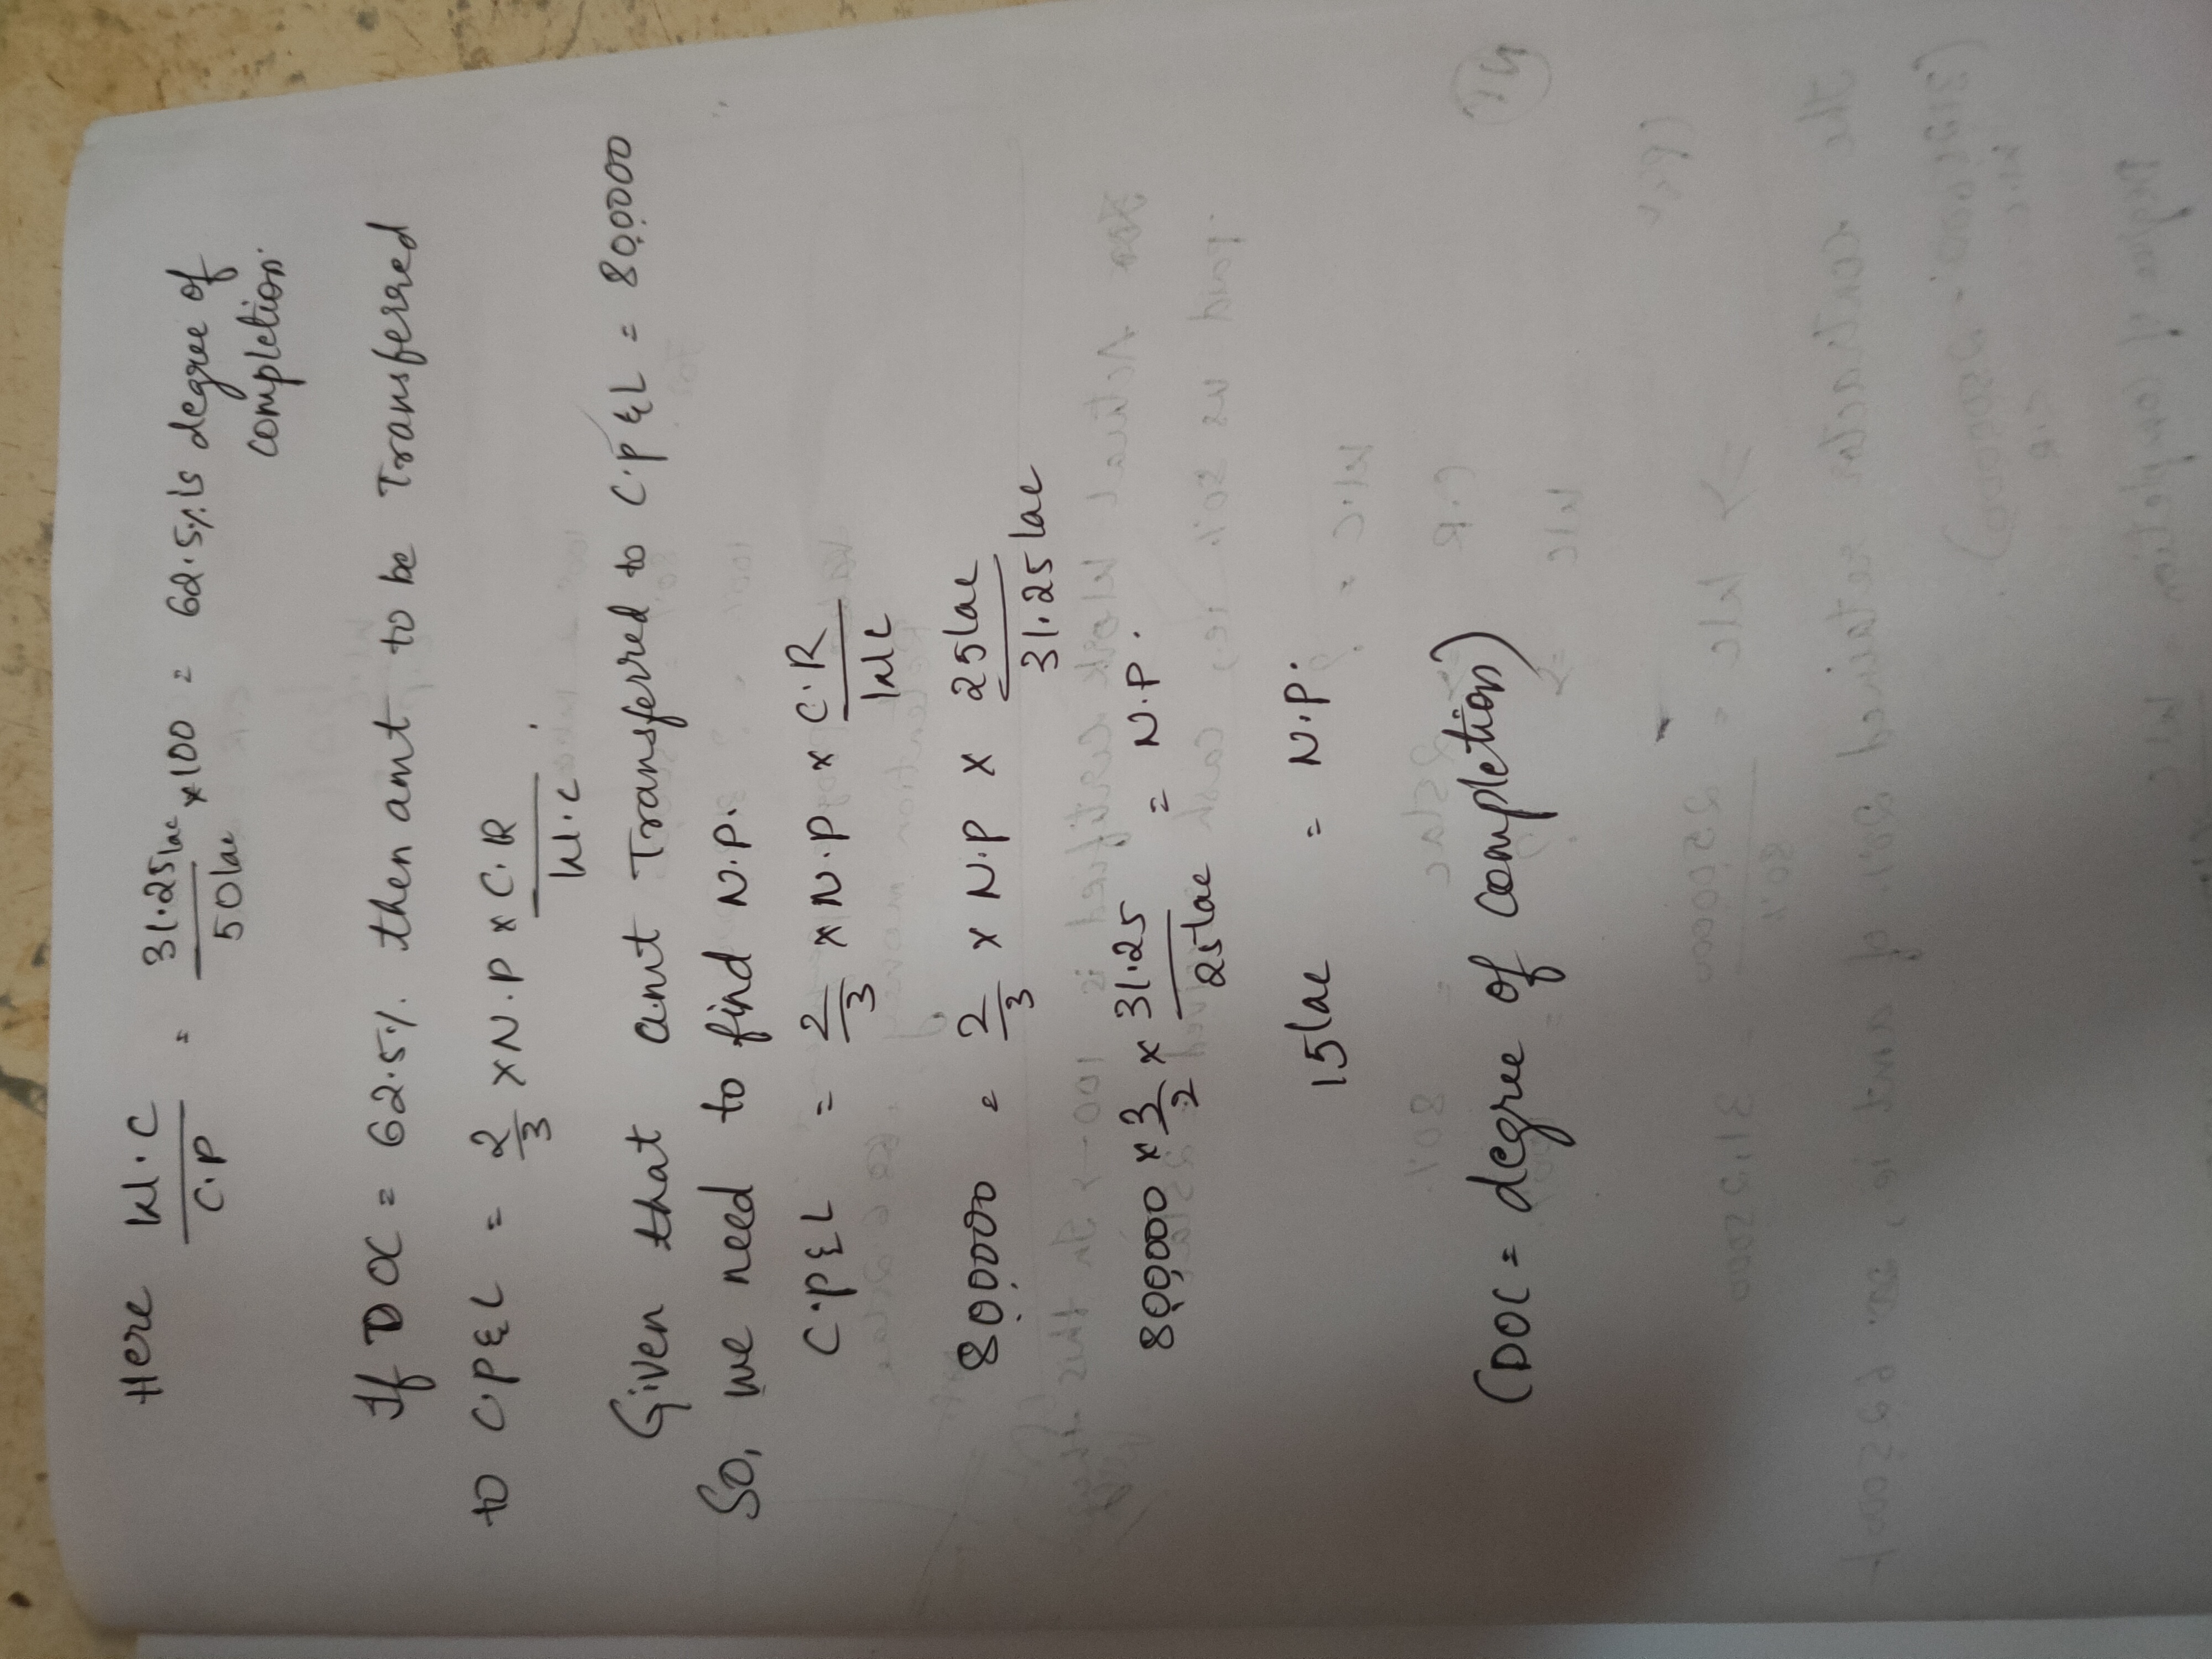 Here W.C / C.P = 31.25 lac / 50 lac × 100 = 62.5% is degree of completion.
If DOC = 62.5% then amt to be Transferred
to C.P&L = 2/3 × N.P × C.R / W.C
Given that amt Transferred to C.P&L = 8,00,000
So, we need to find N.P.
C.P&L = 2/3 × N.P × C.R / W.C
8,00,000 = 2/3 × N.P × 25 lac / 31.25 lac
8,00,000 × 3/2 × 31.25 / 25 lac = N.P.
15 lac = N.P.
(DOC = degree of completion)